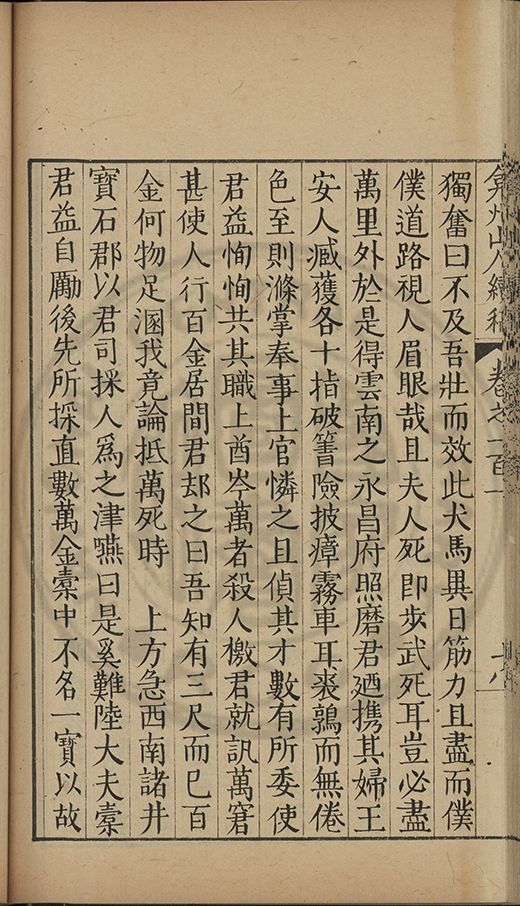 弇州山人續稿 卷之一百一 十八
獨奮曰不及吾壯而效此犬馬異日筋力且盡而僕
僕道路視人眉眼哉且夫人死即歩武死耳豈必盡
萬里外於是得雲南之永昌府照磨君廼携其婦王
安人臧獲各十指破箐險披瘴霧車耳裘鶉而無倦
色至則滌掌奉事上官憐之且偵其才數有所委使
君益恂恂共其職上酋岑萬者殺人檄君就訊萬窘
甚使人行百金居間君却之曰吾知有三尺而已百
金何物足溷我竟論抵萬死時 上方急西南諸井
寶石郡以君司採人爲之津嚥曰是奚難陸大夫橐
君益自勵後先所採直數萬金橐中不名一寶以故